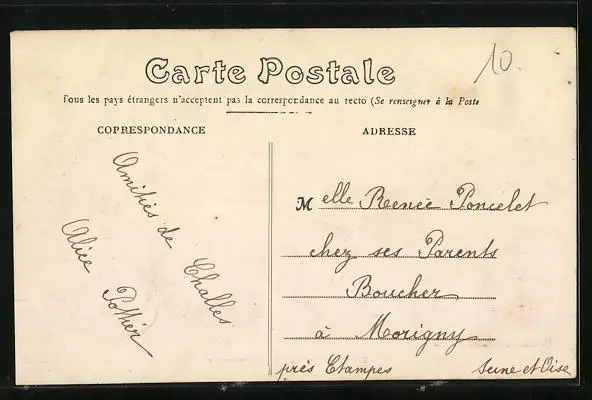 10.
Carte Postale
Tous les pays étrangers n'acceptent pas la correspondance au recto (Se renseigner à la Poste
CORRESPONDANCE
ADRESSE
Amitiés de Challes
Alice Pothier
Melle Renée Poncelet
chez ses Parents
Boucher
à Morigny
près Etampes Seine et Oise